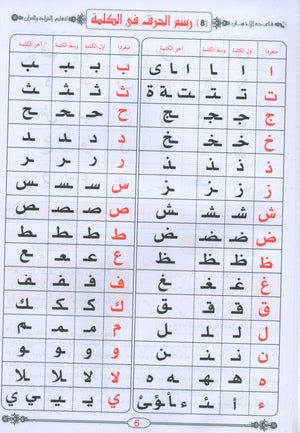 (8) رسم الحرف في الكلمة
مفردا أول الكلمة وسط الكلمة آخر الكلمة مفردا أول الكلمة وسط الكلمة آخر الكلمة
ا ا ـا ـا ـى ب بـ ـبـ ـب
ت تـ ـتـ ـت ـة ث ثـ ـثـ ـث
ج جـ ـجـ ـج ح حـ ـحـ ـح
خ خـ ـخـ ـخ د د ـد ـد
ذ ذ ـذ ـذ ر ر ـر ـر
ز ز ـز ـز س سـ ـسـ ـس
ش شـ ـشـ ـش ص صـ ـصـ ـص
ض ضـ ـضـ ـض ط ط ـطـ ـط
ظ ظـ ـظـ ـظ ع عـ ـعـ ـع
غ غـ ـغـ ـغ ف فـ ـفـ ـف
ق قـ ـقـ ـق ك كـ ـكـ ـك
ل لـ ـلـ ـل م مـ ـمـ ـم
ن نـ ـنـ ـن و و ـو ـو
ه هـ ـهـ ـه لا لا ـلا ـلا
ء أ ـئـ ـأ ـؤ ئ ي يـ ـيـ ـي ي
6